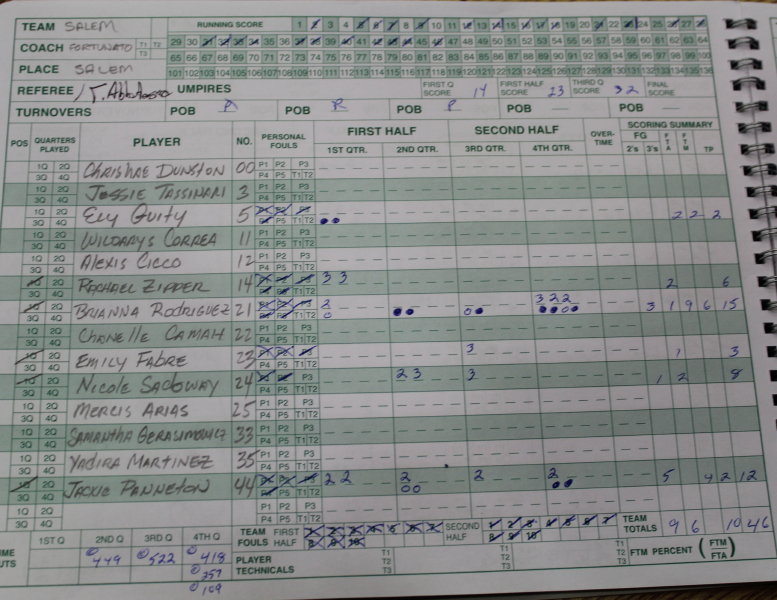 TEAM SALEM RUNNING SCORE 1 2 3 4 5 6 7 8 9 10 11 12 13 14 15 16 17 18 19 20 21 22 23 24 25 26 27 28
COACH FORTUNATO T1 T2 T3 29 30 31 32 33 34 35 36 37 38 39 40 41 42 43 44 45 46 47 48 49 50 51 52 53 54 55 56 57 58 59 60 61 62 63 64
65 66 67 68 69 70 71 72 73 74 75 76 77 78 79 80 81 82 83 84 85 86 87 88 89 90 91 92 93 94 95 96 97 98 99 100
PLACE SALEM 101 102 103 104 105 106 107 108 109 110 111 112 113 114 115 116 117 118 119 120 121 122 123 124 125 126 127 128 129 130 131 132 133 134 135 136
REFEREE UMPIRES FIRST Q SCORE 14 FIRST HALF SCORE 23 THIRD Q SCORE 32 FINAL SCORE
TURNOVERS POB POB R POB P POB POB
POS QUARTERS PLAYED PLAYER NO. PERSONAL FOULS FIRST HALF SECOND HALF OVER-TIME SCORING SUMMARY
1ST QTR. 2ND QTR. 3RD QTR. 4TH QTR. FG 2's 3's FTA FTM TP
1Q 2Q 3Q 4Q 00 P1 P2 P3 P4 P5 T1 T2
1Q 2Q 3Q 4Q JESSIE TASSINARI 3 P1 P2 P3 P4 P5 T1 T2
1Q 2Q 3Q 4Q ELY GUITY 5 2 2 2
1Q 2Q 3Q 4Q WILDARYS CORREA 11 P1 P2 P3 P4 P5 T1 T2
1Q 2Q 3Q 4Q ALEXIS CICCO 12 P1 P2 P3 P4 P5 T1 T2
1Q 2Q 3Q 4Q RACHAEL ZIPPER 14 3 3 2 6
1Q 2Q 3Q 4Q BRIANNA RODRIGUEZ 21 2 3 2 2 3 1 9 6 15
1Q 2Q 3Q 4Q CHANELLE CAMAH 22 P1 P2 P3 P4 P5 T1 T2
1Q 2Q 3Q 4Q EMILY FABRE 23 3 1 3
1Q 2Q 3Q 4Q NICOLE SADOWAY 24 2 3 3 1 2 8
1Q 2Q 3Q 4Q MERCIS ARIAS 25 P1 P2 P3 P4 P5 T1 T2
1Q 2Q 3Q 4Q SAMANTHA GERASIMOWICZ 33 P1 P2 P3 P4 P5 T1 T2
1Q 2Q 3Q 4Q YADIRA MARTINEZ 35 P1 P2 P3 P4 P5 T1 T2
1Q 2Q 3Q 4Q JACKIE PANNETON 44 2 2 2 2 2 5 4 2 12
1Q 2Q 3Q 4Q P1 P2 P3 P4 P5 T1 T2
1ST Q 2ND Q 3RD Q 4TH Q TEAM FOULS FIRST HALF 1 2 3 4 5 6 7 8 9 10 SECOND HALF 1 2 3 4 5 6 7 8 9 10 TEAM TOTALS 9 6 10 46
449 522 418 PLAYER TECHNICALS T1 T2 T3 T1 T2 T3 T1 T2 T3 FTM PERCENT (FTM FTA)
357
109